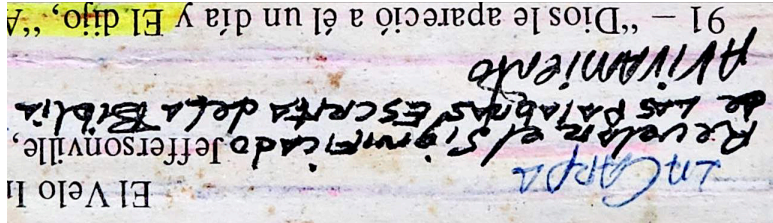 El Velo In
La Carpa
Jeffersonville,
Revelar el Significado
de LAS PALABRAS ESCRITA de la Biblia
AVIVAMIENTO
91 – “Dios le apareció a él un día y El dijo, “A